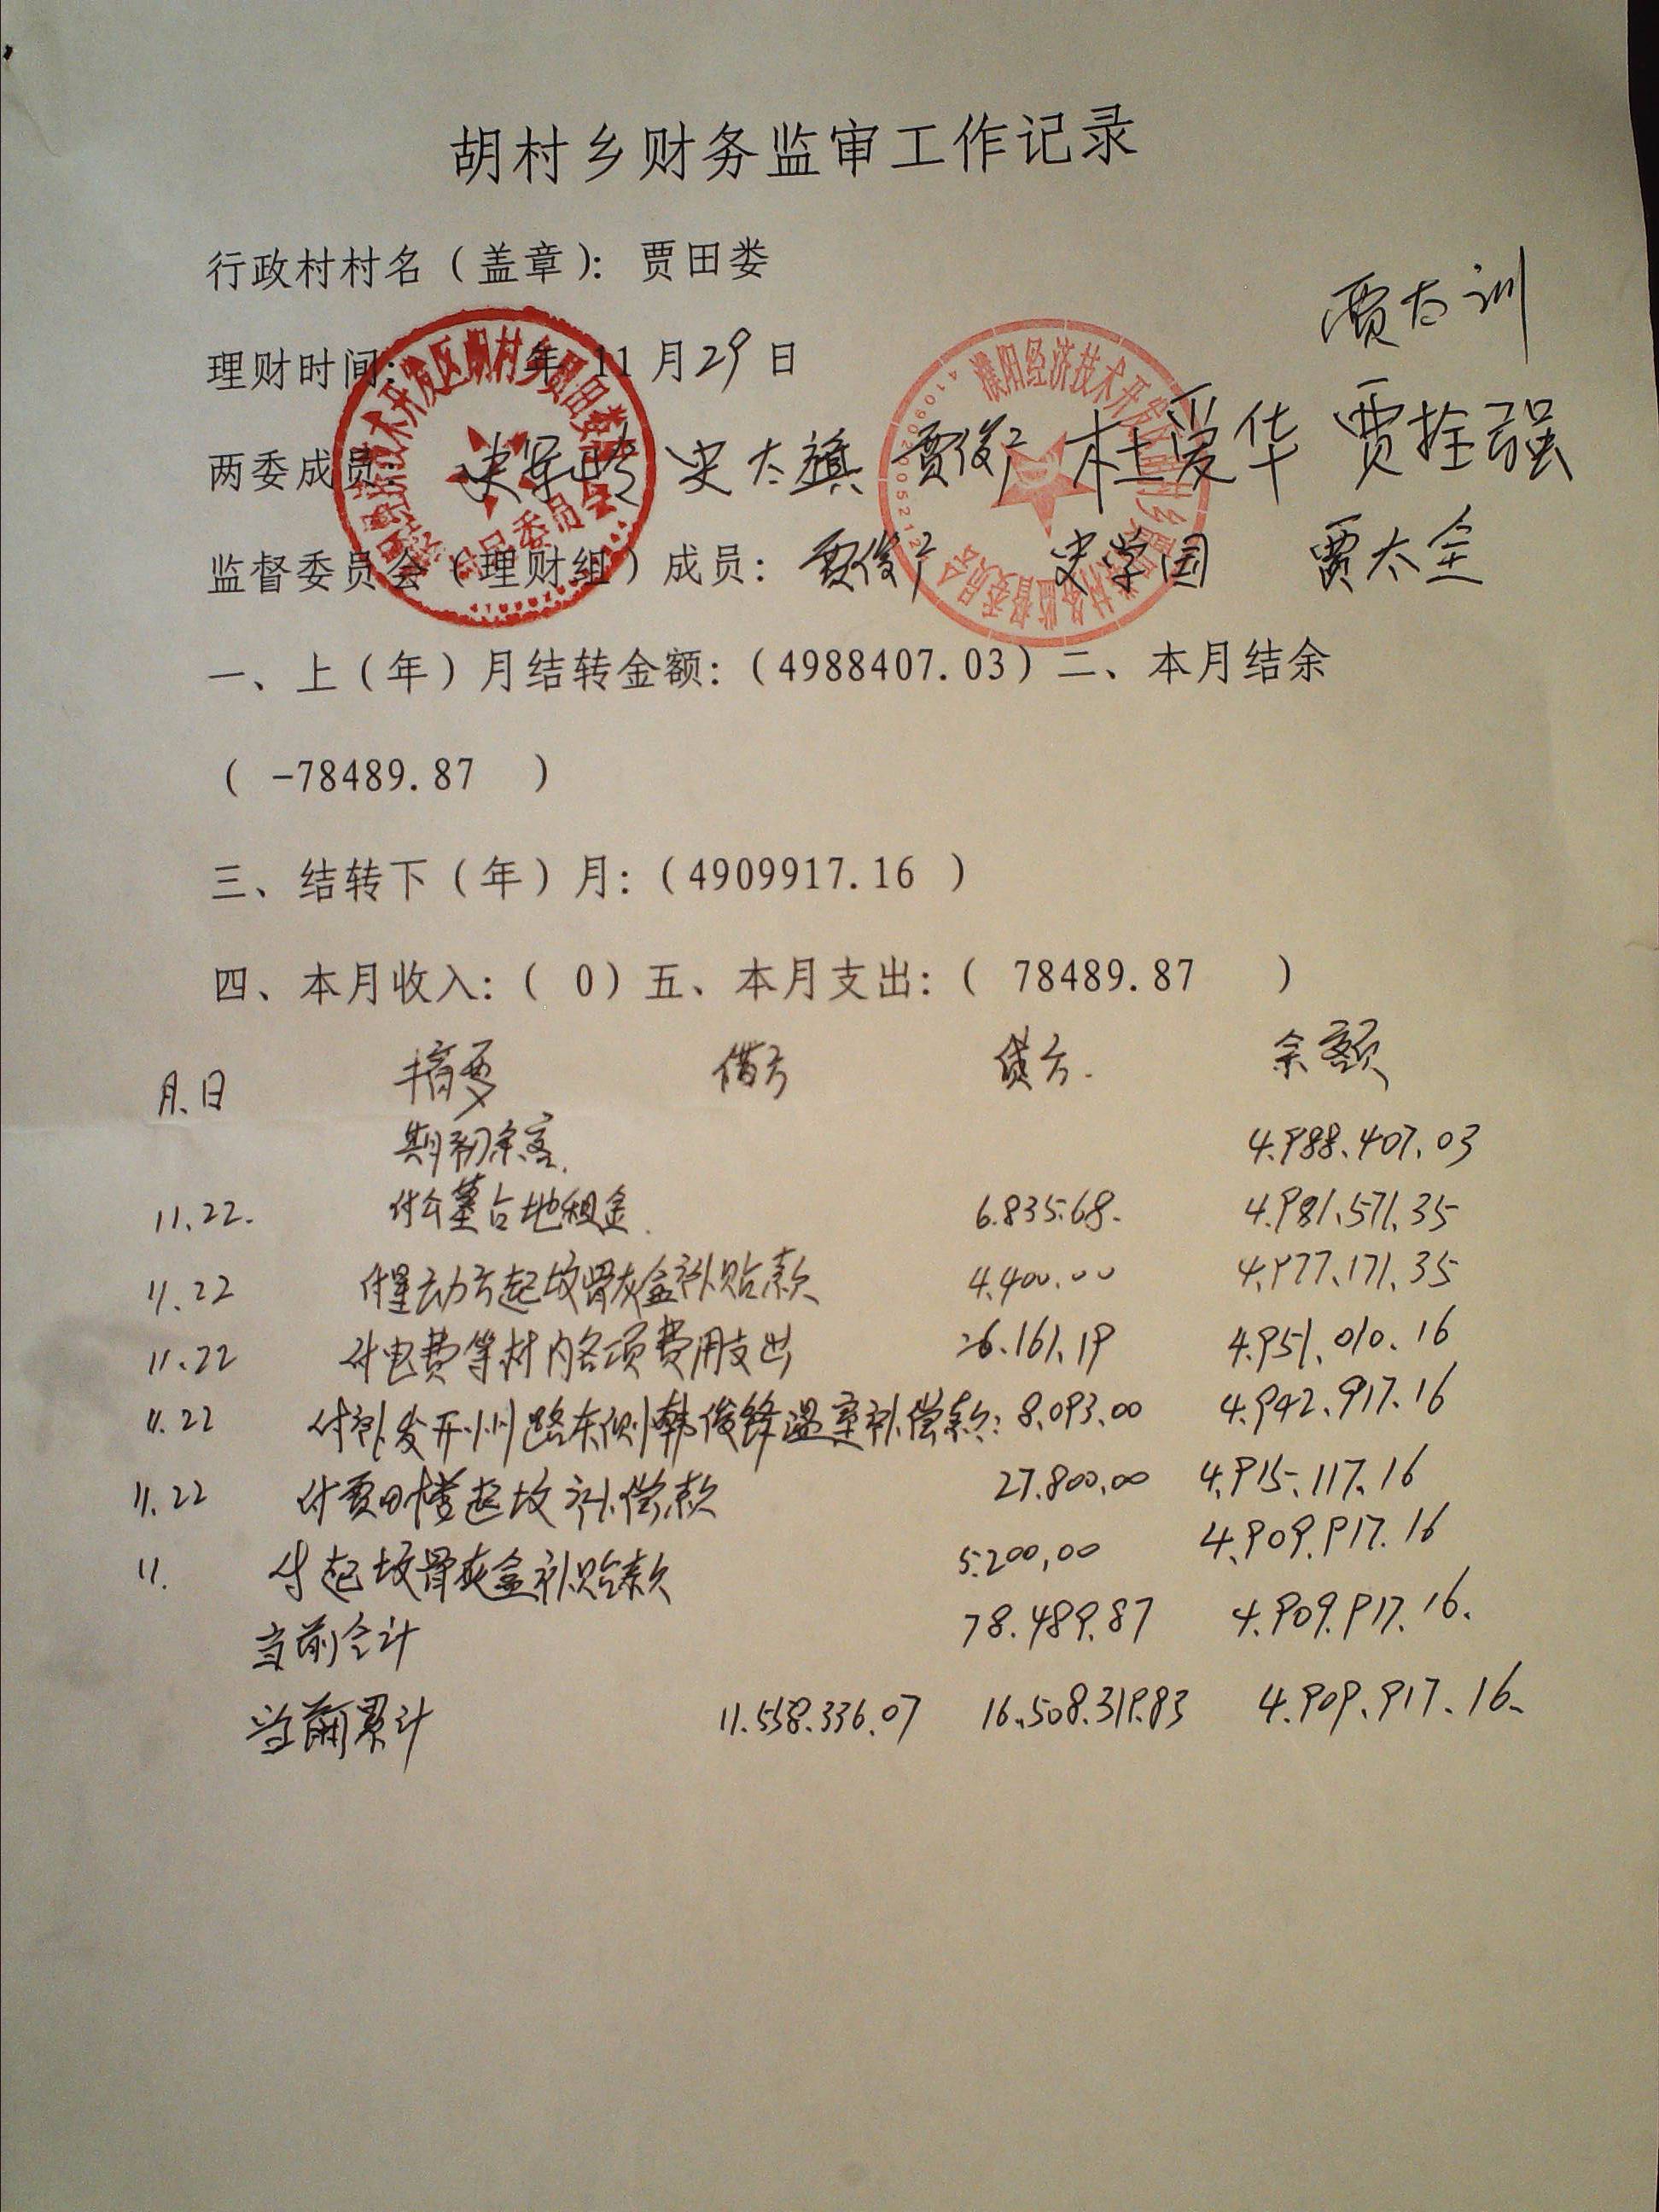 胡村乡财务监审工作记录
行政村村名（盖章）：贾田娄
贾太训
理财时间： 年 11 月 29 日
两委成员： 史太旗 贾俊广 杜爱华 贾拴强
监督委员会（理财组）成员：贾俊广 史学国 贾太全
一、上（年）月结转金额：（4988407.03）二、本月结余
（ -78489.87 ）
三、结转下（年）月：（4909917.16 ）
四、本月收入：（ 0）五、本月支出：（ 78489.87 ）
月.日 摘要 借方 贷方. 余额
期初余额. 4.988.407.03
11.22. 付公墓占地租金. 6.835.68. 4.981.571.35
11.22 起坟骨灰盒补贴款 4.400.00 4.977.171.35
11.22 付电费等村内各项费用支出 26.161.19 4.951.010.16
11.22 付补发开州路东侧韩俊锋温室补偿款: 8.093.00 4.942.917.16
11.22 付贾田楼起坟补偿款 27.800.00 4.915.117.16
11. 付起坟骨灰盒补贴款 5.200.00 4.909.917.16
当前合计 78.489.87 4.909.917.16.
当前累计 11.558.336.07 16.508.319.83 4.909.917.16.